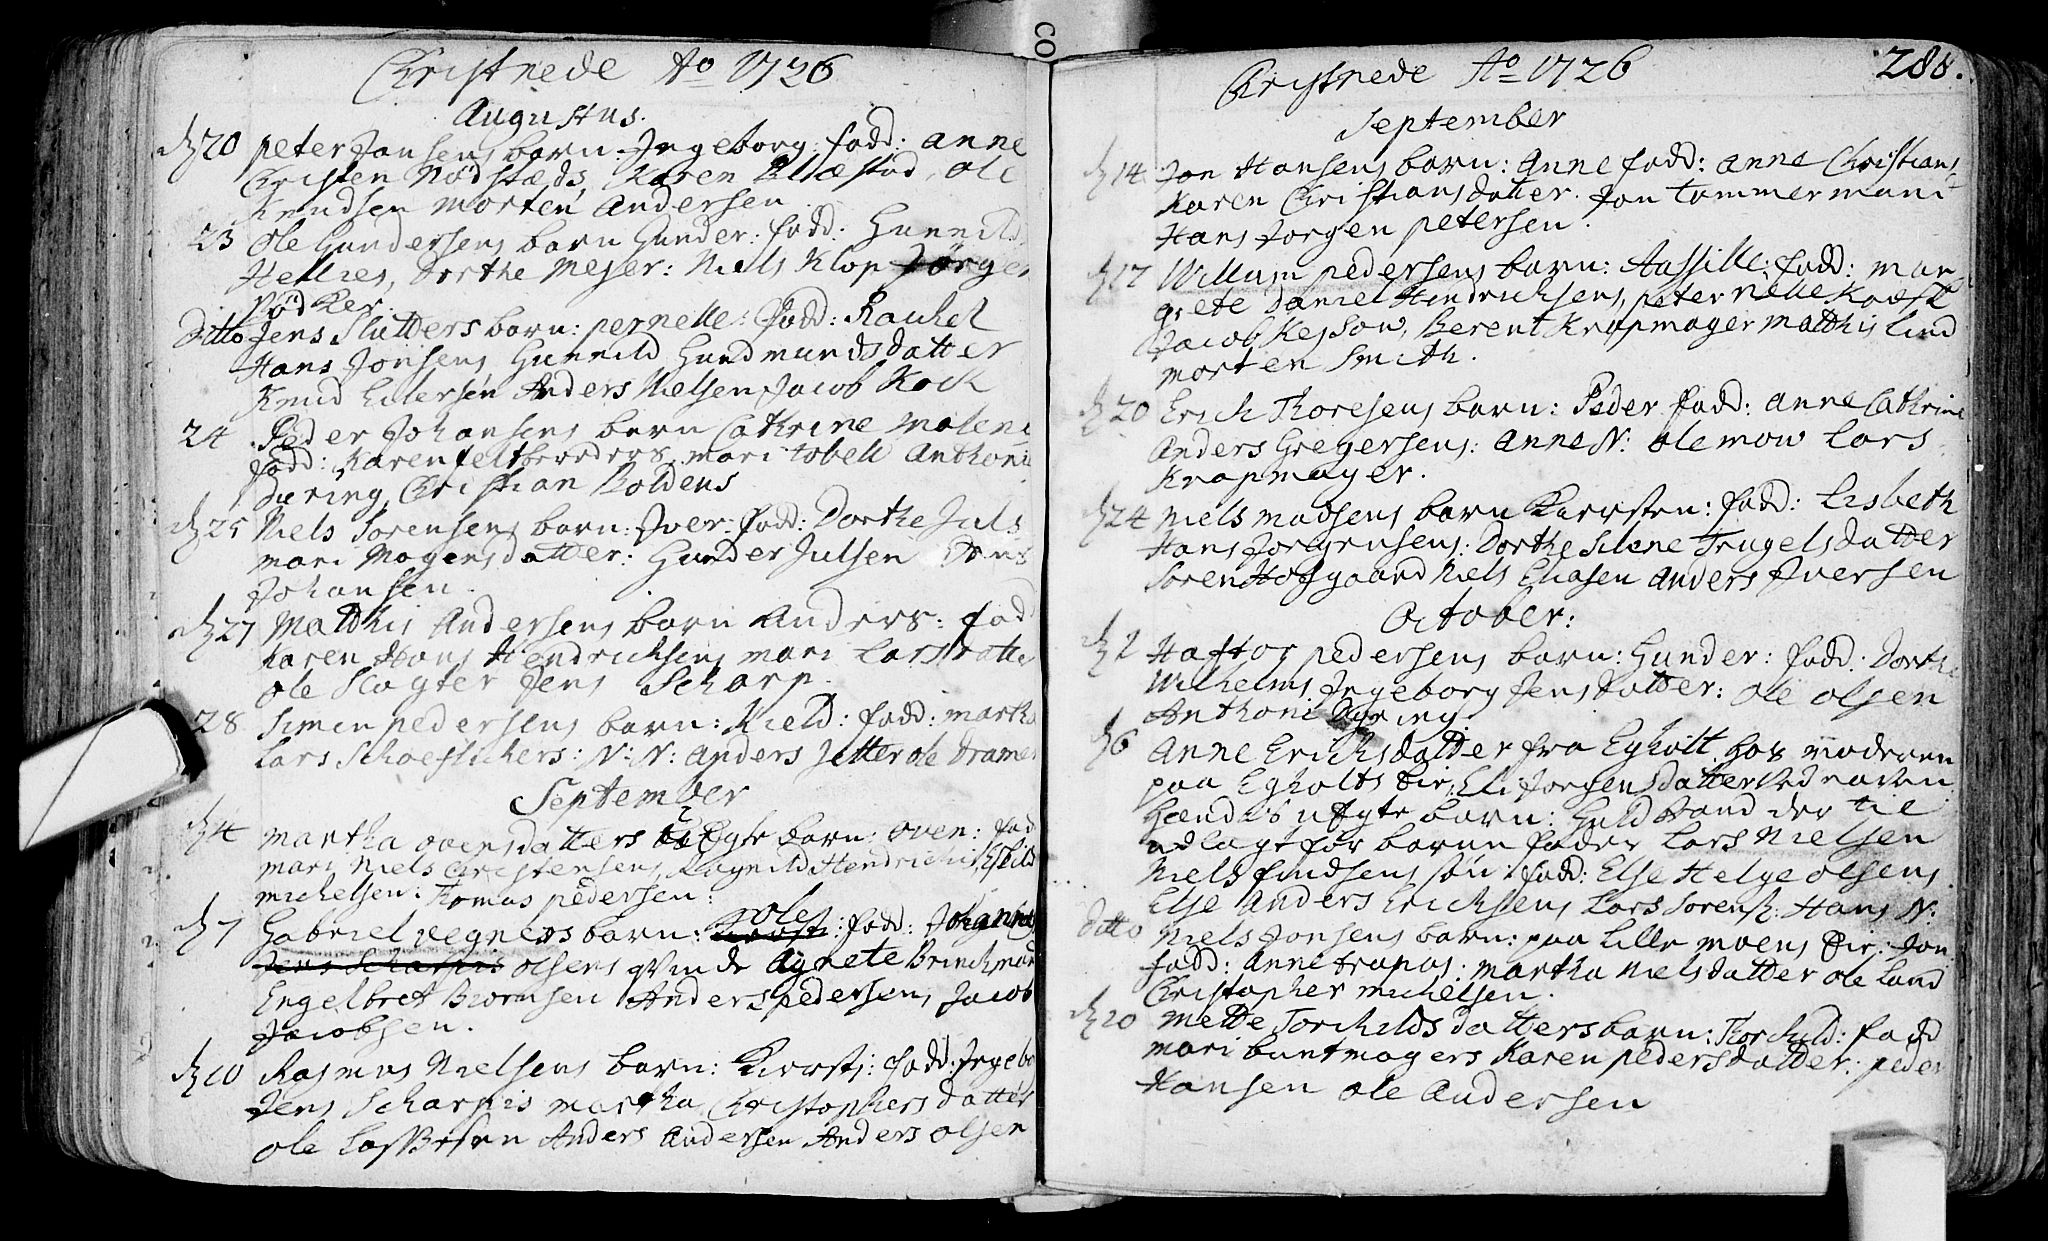 Christnede Ao 1726
Augustus.
d 20 peter Jansens barn: Ingeborg: fadd: anne
Christen Nødstæds, Karen Blæstad, ole
Knudsen morten Andersen
23 ole Gundersens barn Gunder: fadd: Gunnild
Hellies, Dorthe Mejer: Niels Klop Jørgen
Bødker
Ditto Jens Slutters barn: pernelle: fadd: Rachel
Hans Jonsens Gunnild Gudmundsdatter
Knud Eilersen Anders Nielsen Jacob Kock
24 Peder Johansens barn Cathrine Malene
fadd: Karen feltbereders mari tobell Anthoni
During Christian Boldens
d 25 Niels Sørensens barn: Iver: fadd: Dorthe Juls
mari Mogensdatter: Gunder Julsen
Johansen.
d 27 Matthis Andersens barn Anders: fad
karen Hans Hendrichsens mari Lars
ole Slagter Jens Scharp.
28 Simen pedersens barn: Kield: fadd: martha
Lars Schoeflickers: N: N: anders Jetter ole Dramen
September
d 4 martha ovensdatters Egte barn: oven: fad
mari Niels Christensens, Ragnild Hendrichs, Eskild
michelsen: Thomas pedersen:
d 7 Gabriel vegners barn: ole: fadd: Johannes
Jens Scharpis olsens qvinde Agnete Brinchmand
Engelbret Biørnsen Anders pedersen, Jacob
Jacobsen.
d 10 Rasmus Nielsens barn: Kiersti: fadd: Ingebor
Jens Scharpis martha Christophersdatter
ole Lassesen Anders Andersen Anders olsen
Christnede Ao 1726
288.
September
d 14 Jon Hansens barn: Anne fadd: anne Christians
Karen Christiansdatter. Jon tømmermand
Hans Jørgen petersen.
d 17 Willum pedersens barn: Aassille: fadd: mar-
grete Daniel Hindrichsens, peternelle Koefk
Jacob Kessow, Berent Knapmager Matthis lind
morten Smith.
d 20 Erich Thoresens barn: Peder fadd: anne Cathrine
Anders Gregersens: anne N: ole mow Lars
Knapmager.
d 24 Niels madsens barn Kiersten: fadd: Lisbeth
Hans Jørgensens: Dorthe Silene Trugelsdatter
Søren Hofgaard Niels Eliasen Anders Iversen
October:
d 2 Haftor pedersens barn: Gunder: fadd: Dorthe
Wilhelms, Ingeborg Jensdatter: ole olsen
Anthoni Dyring
d 6 Anne Erichsdatter fra Egholt hos moderen
paa Egholts Eie, Eli Jørgensdatter ved naven
Hendes uegte barn: Guldbrand der til
udlagt for barne fader Lars Nielsen
Niels findsens søn: fadd: Else Helge olsens
Else Anders Erichsens Lars Sørens: Hans N:
ditto Niels Jonsens barn: paa Lille moens Eie: Jon
fadd: Anne trapas: martha Nielsdatter ole Lund
Christopher michelsen.
d 20 Mette Torchildsdatters barn: Thorchild: fadd
mari buntmagers Karen pedersdatter: peder
Hansen ole Andersen